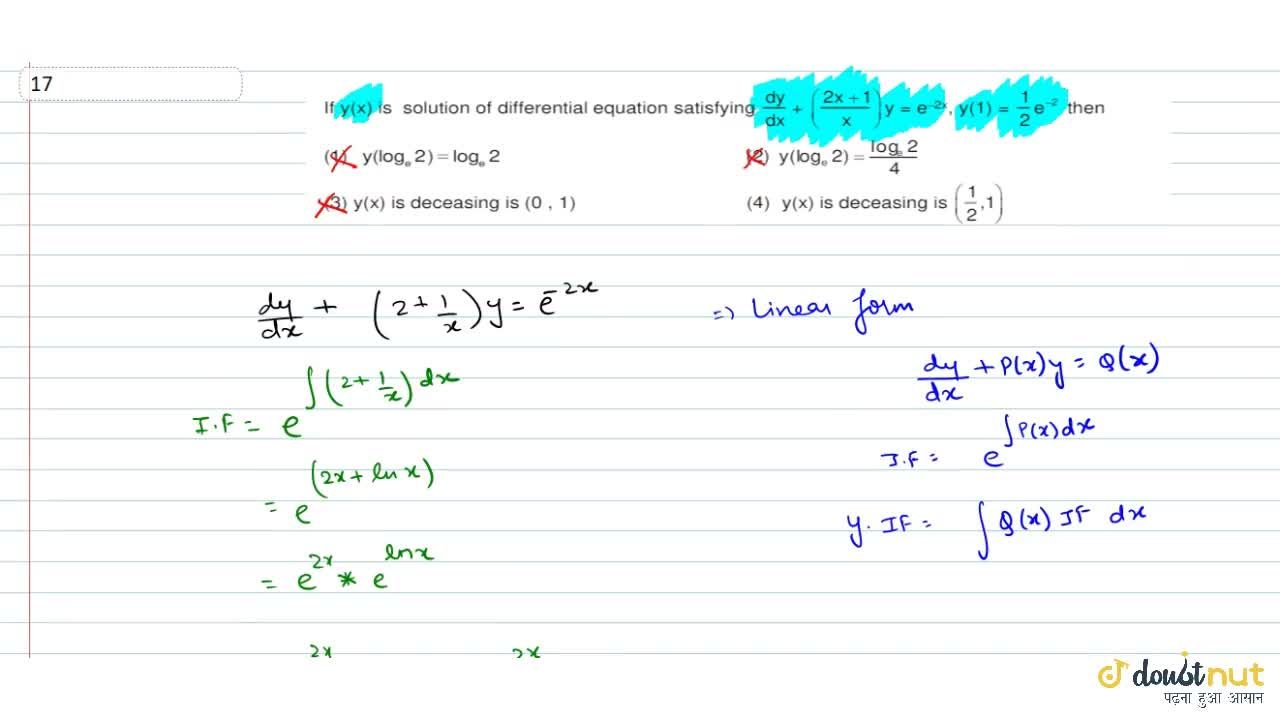 17
If y(x) is solution of differential equation satisfying dy/dx + ((2x+1)/x) y = e^-2x, y(1) = 1/2 e^-2 then
(1) y(logₑ 2) = logₑ 2 (2) y(logₑ 2) = logₑ 2/4
(3) y(x) is deceasing is (0 , 1) (4) y(x) is deceasing is (1/2, 1)
dy/dx + (2 + 1/x) y = e^-2x => Linear form
dy/dx + P(x)y = Q(x)
I.F = e^∫(2 + 1/x) dx
I.F = e^∫P(x)dx
= e^(2x + ln x)
y. IF = ∫ Q(x) IF dx
= e^2x * e^ln x
2x 2x
doubtnut
पढ़ना हुआ आसान